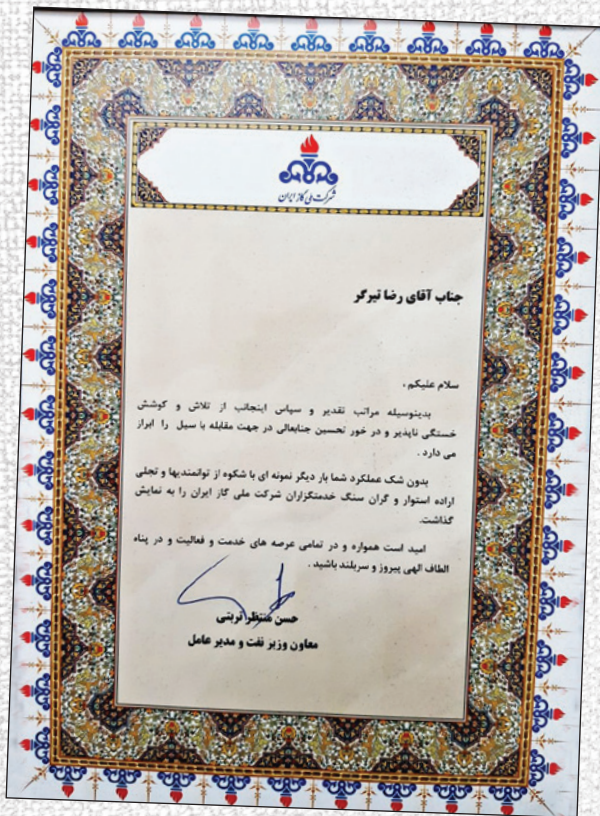 شرکت ملی گاز ایران
جناب آقای رضا تیرگر
سلام علیکم ،
بدینوسیله مراتب تقدیر و سپاس اینجانب از تلاش و کوشش
خستگی ناپذیر و در خور تحسین جنابعالی در جهت مقابله با سیل را ابراز
می دارد .
بدون شک عملکرد شما بار دیگر نمونه ای با شکوه از توانمندیها و تجلی
اراده استوار و گران سنگ خدمتگزاران شرکت ملی گاز ایران را به نمایش
گذاشت.
امید است همواره و در تمامی عرصه های خدمت و فعالیت و در پناه
الطاف الهی پیروز و سربلند باشید .
حسن منتظر تربتی
معاون وزیر نفت و مدیر عامل